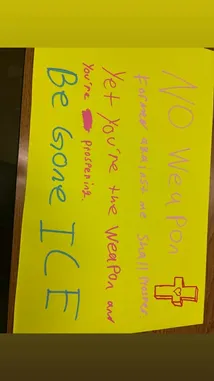 NO Weapon
Formed against me shall prosper
Yet You're the Weapon and
You're prospering.
Be Gone ICE